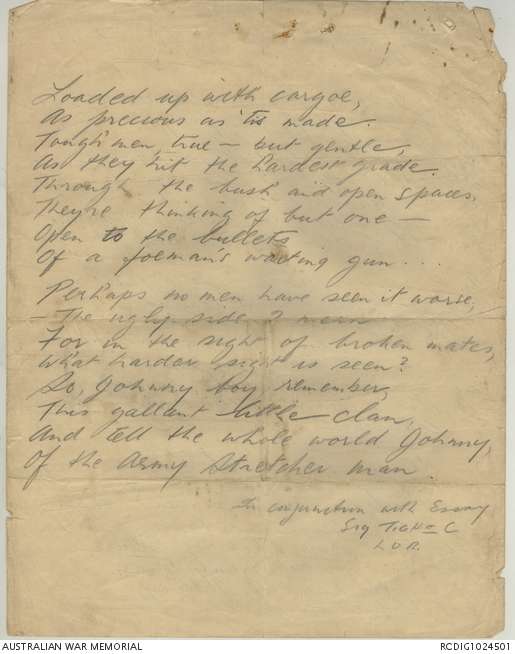 Loaded up with cargoe,
As precious as 'tis made.
Tough men, true – but gentle,
As they hit the hardest grade.
Through the bush and open spaces,
They're thinking of but one –
Open to the bullets
Of a foeman's waiting gun...
Perhaps no men have seen it worse,
– The ugly side I mean
For in the sight of broken mates,
What harder sight is seen?
So, Johnny boy remember,
This gallant little clan,
And tell the whole world Johnny,
Of the Army Stretcher man.
In conjunction with Essay
Sig C
AUSTRALIAN WAR MEMORIAL
RCDIG1024501